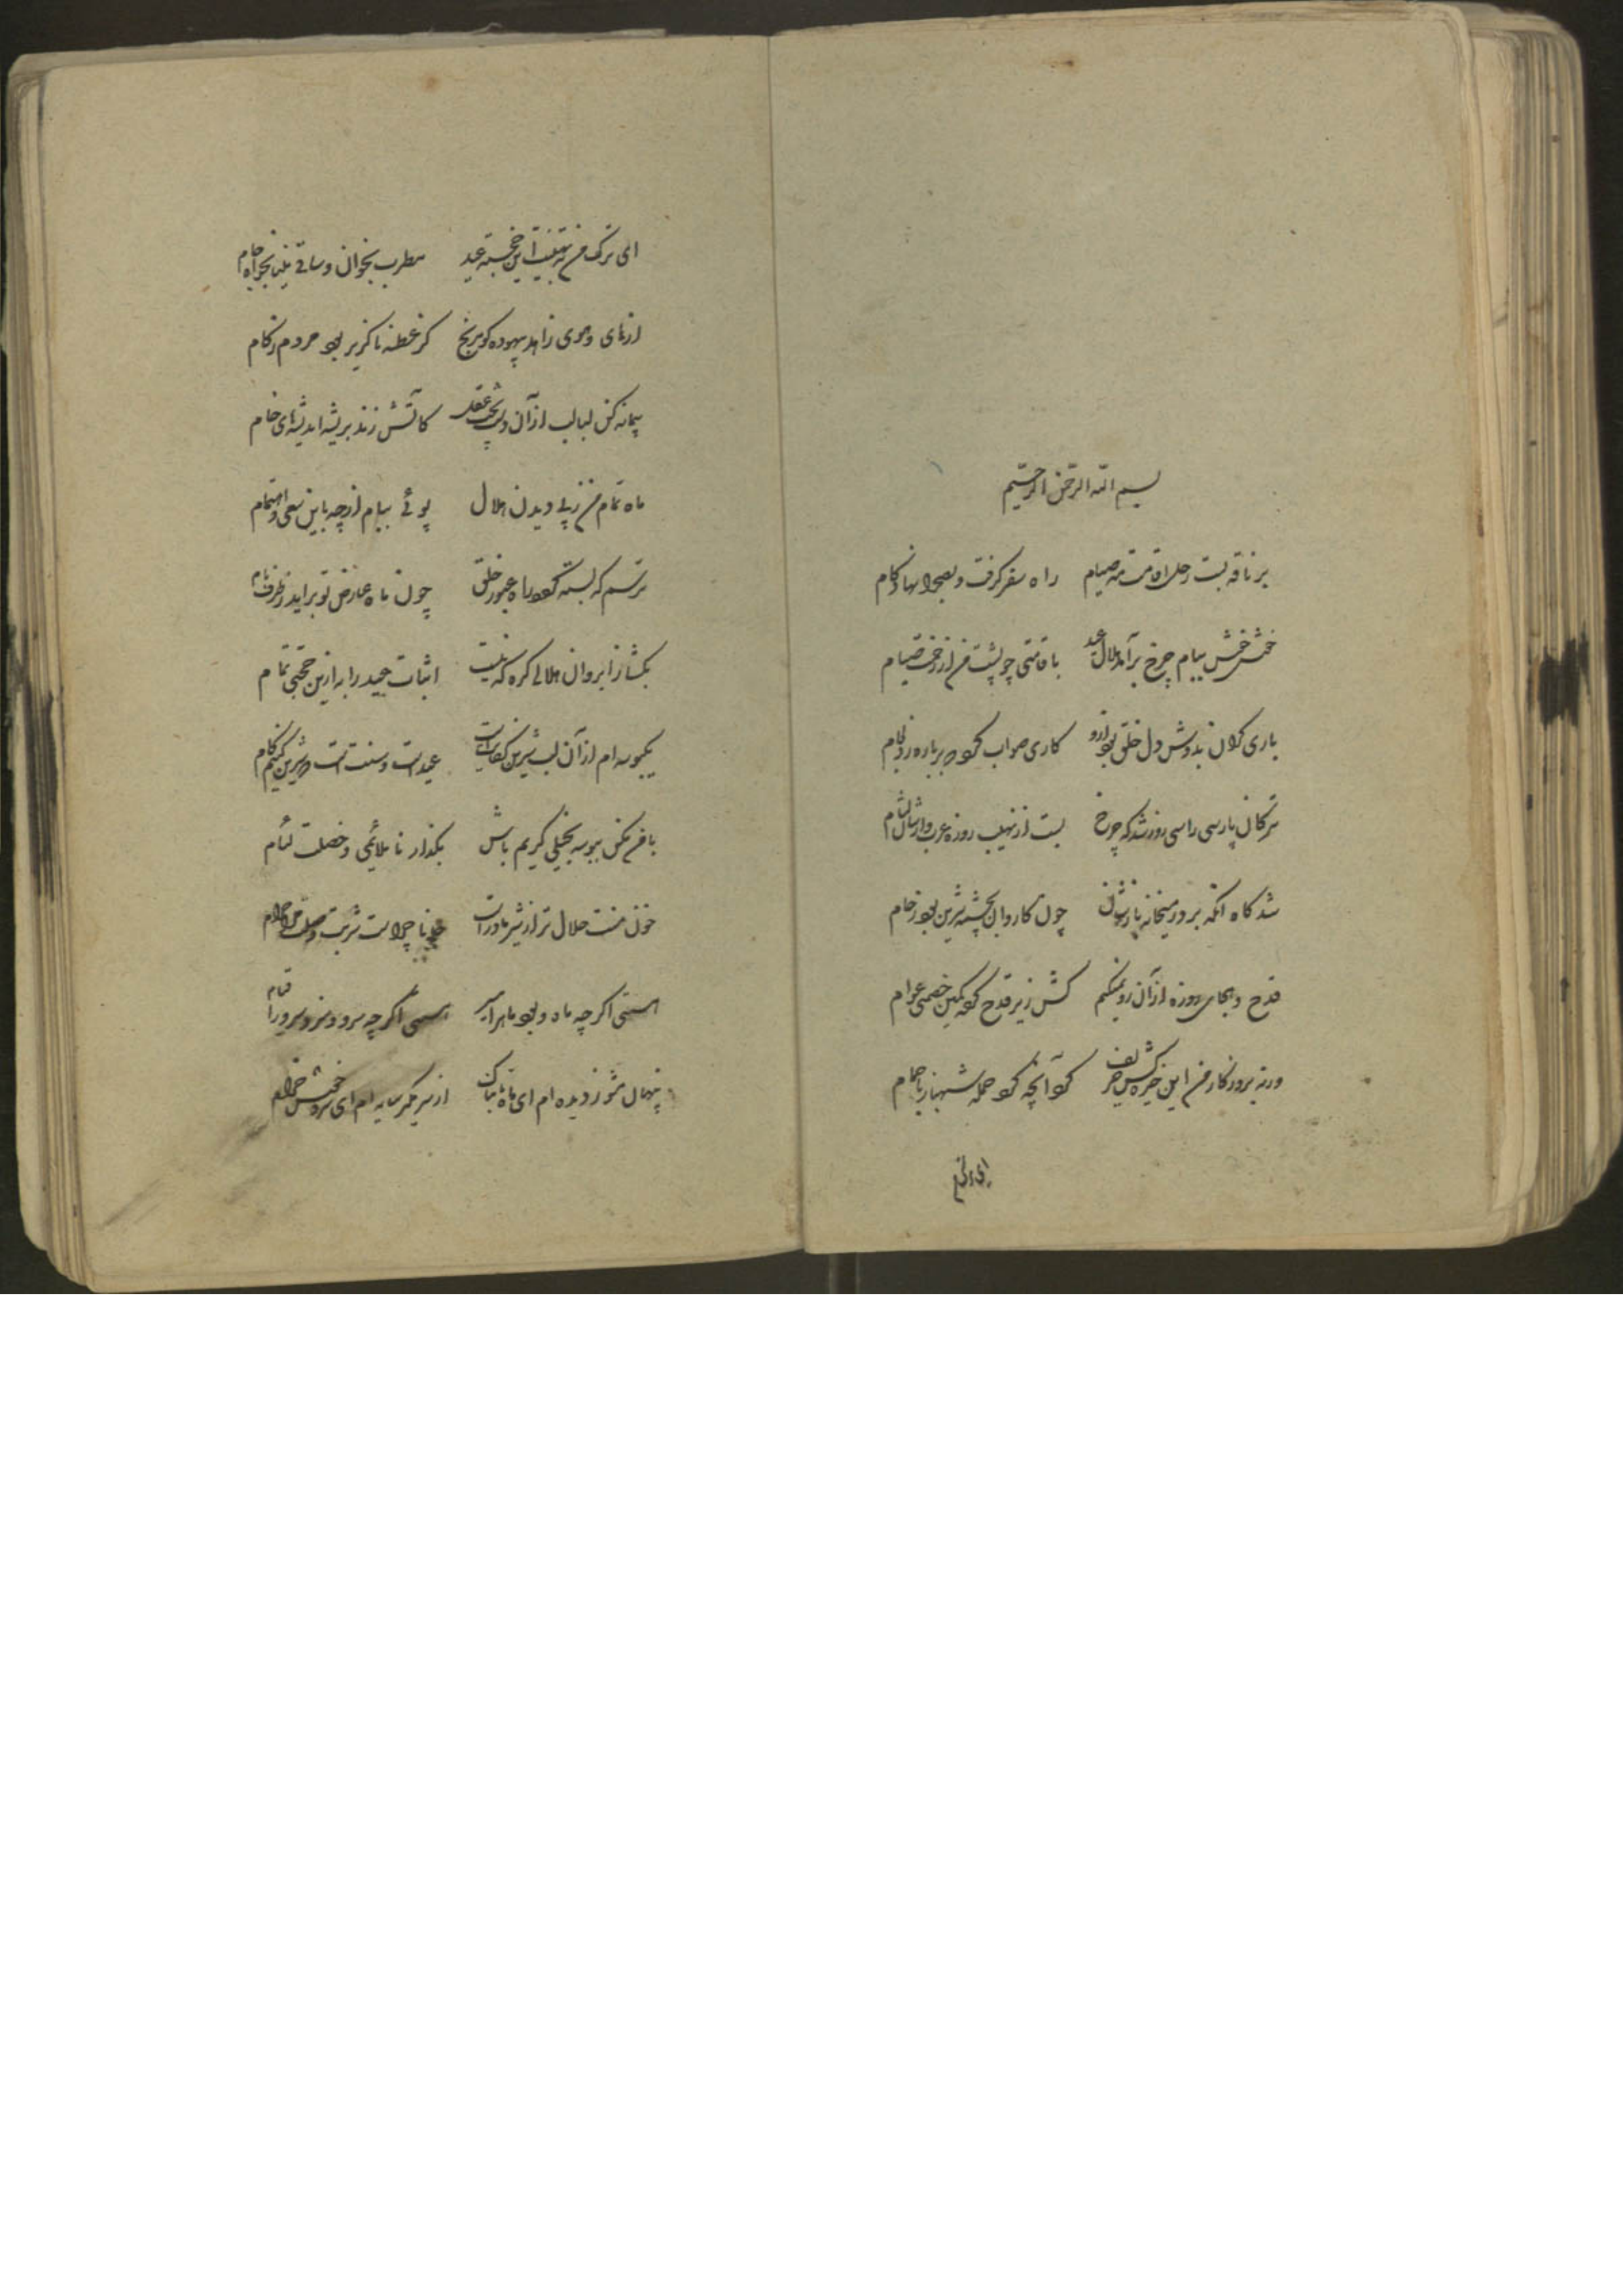 بسم الله الرحمن الرحیم
بر ناقه بست رحل اقامت مه صیام راه سفر گرفت و بصحرا نهاد گام
خوش خوش ببام چرخ برآمد هلال عید با قامتی چو پشت من از زحمت صیام
باری گران بدوش دل خلق بود ازو کاری صواب کرد
ترکان پارسی را سی روز شد که چرخ بست از نهیب روزه عرب وار بر لثام
شد گاه آنکه بر در میخانه باز چون کاروان بچشمه شیرین بود زحام
قدح و هجای روزه از آن رو نمیکنم کش زیر قدح کرده کمین خصمی عوام
ورنه بروزگار من این خیره کرد آنچه کرد حمله شهباز با حمام
ای ترک
ای ترک من به تهنیت این خجسته عید مطرب بخوان و ساقی بخواه جام
از های و هوی زاهد بیهوده گو مرنج کز عطسه ناگزیر بود مردم زکام
پیمانه کن لبالب از آن عقل کاتش زند بریشه اندیشهای خام
ماه تمام من ز پی دیدن هلال پوئی ببام از چه باین سعی و اهتمام
ترسم که بسته گردد راه عبور خلق چون ماه عارض تو برآید ز طرف بام
بگشا ز ابروان هلالی گره که نیست اثبات عید را به ازین حجتی تمام
یکبوسه ام از آن لب شیرین کفایت است عید است و سنت است که شیرین کنیم کام
با من مکن ببوسه بخیلی کریم باش بگذار ناملائمی و خصلت لئام
خون منت حلال تر از شیر مادر است چراست شربت وصلت بمن حرام
هستی اگر چه ماه و بود ماه را مسیر هستی اگر چه سرو و سزد سرو را قیام
پنهان مشو ز دیده ام ای ماه تابناک از سر مگیر سایه ام ای سرو خوش خرام